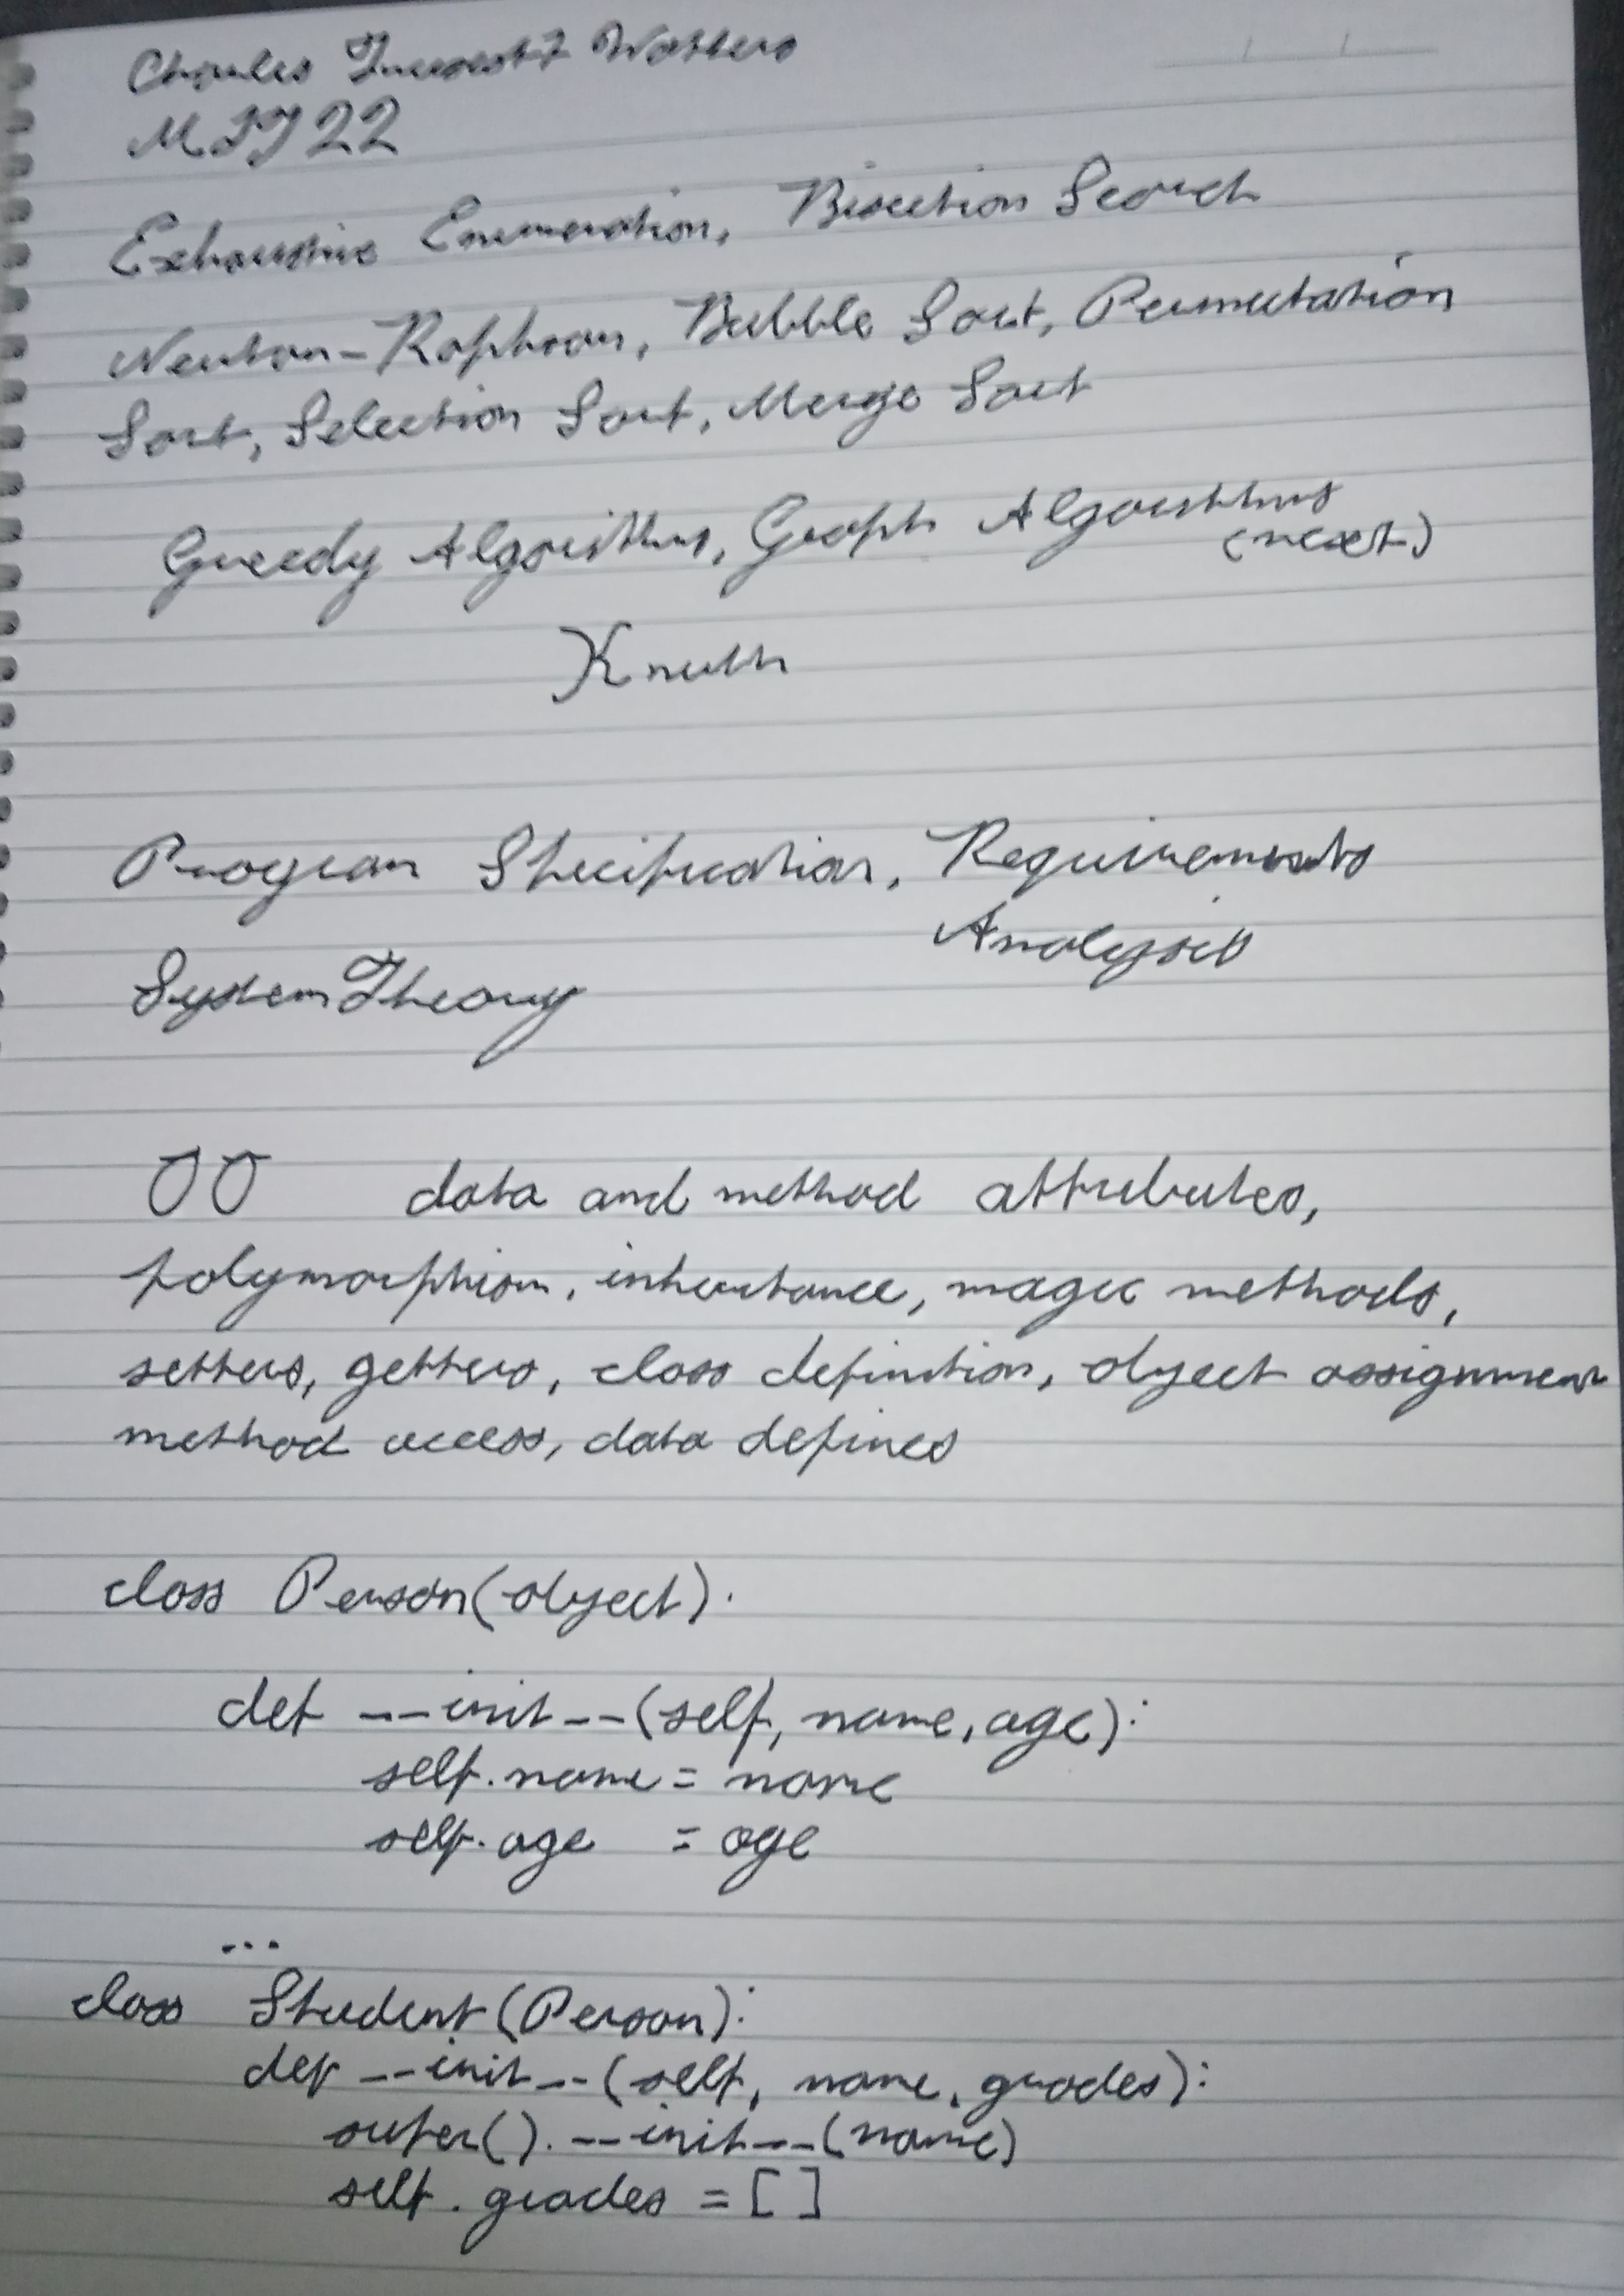 Charles Truscott Watters
Exhaustive Enumeration, Bisection Search
Newton-Raphson, Bubble Sort, Permutation
Sort, Selection Sort, Merge Sort
Greedy Algorithms, Graph Algorithms
(next)
Knuth
Program Specification, Requirements
Analysis
System Theory
OO data and method attributes,
polymorphism, inheritance, magic methods,
setters, getters, class definition, object assignment
method access, data defines
class Person(object):
def __init__(self, name, age):
self.name = name
self.age = age
...
class Student(Person):
def __init__(self, name, grades):
super().__init__(name)
self.grades = []